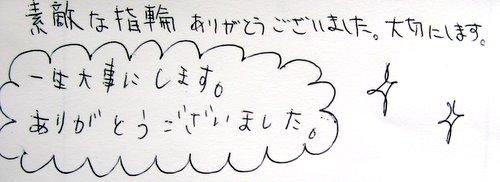 素敵な指輪ありがとうございました。大切にします。
一生大事にします。
ありがとうございました。